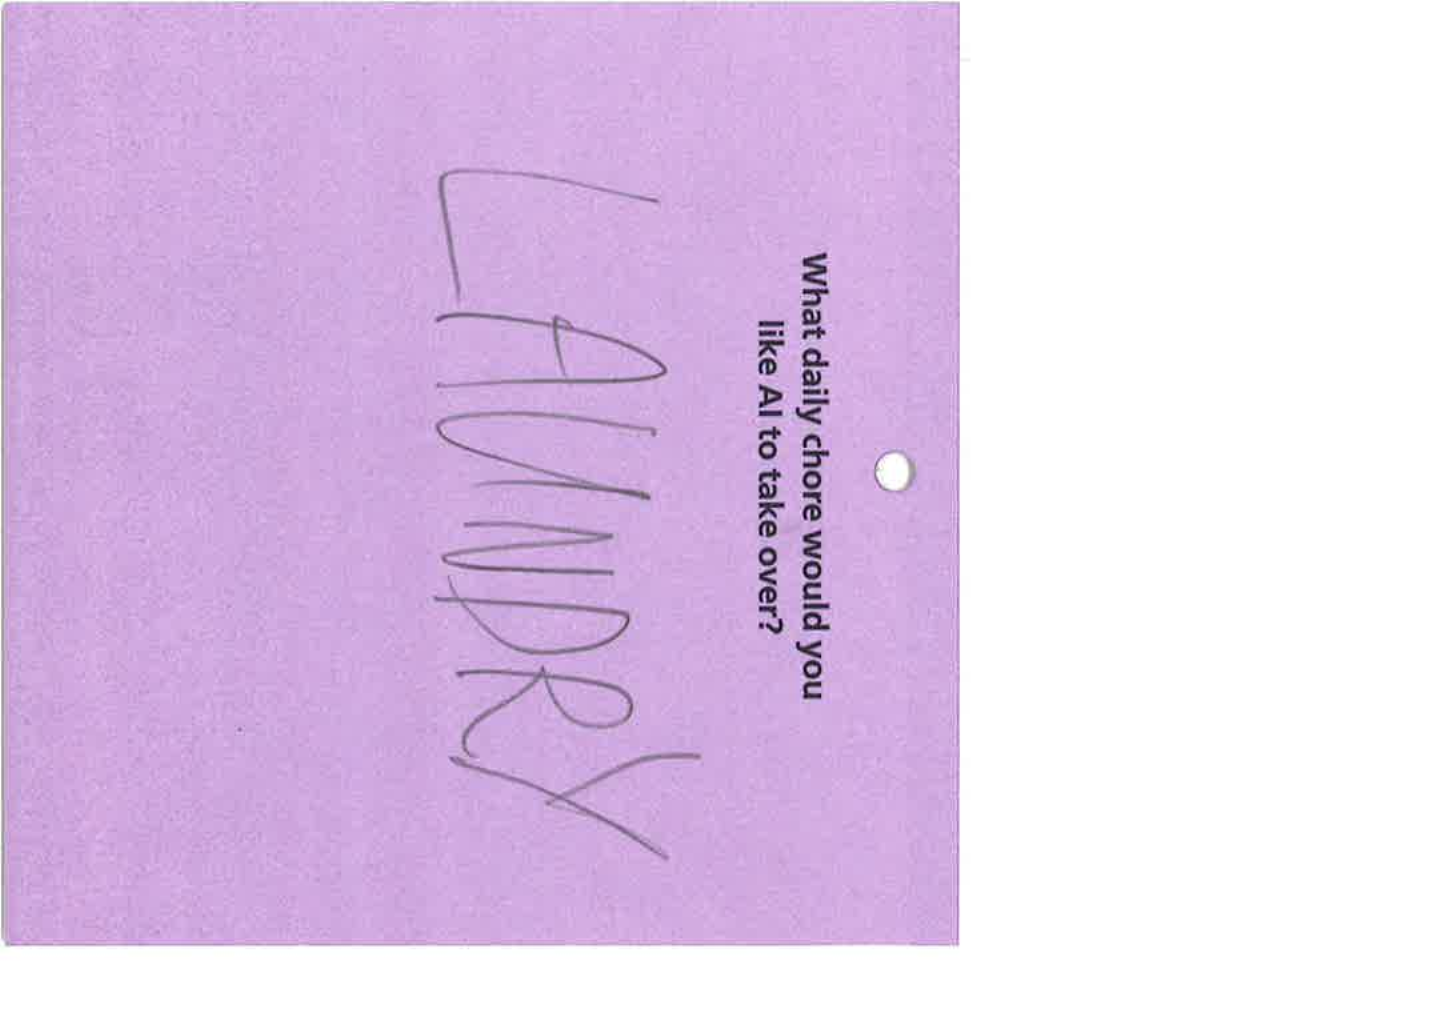 What daily chore would you
like AI to take over?
LAUNDRY